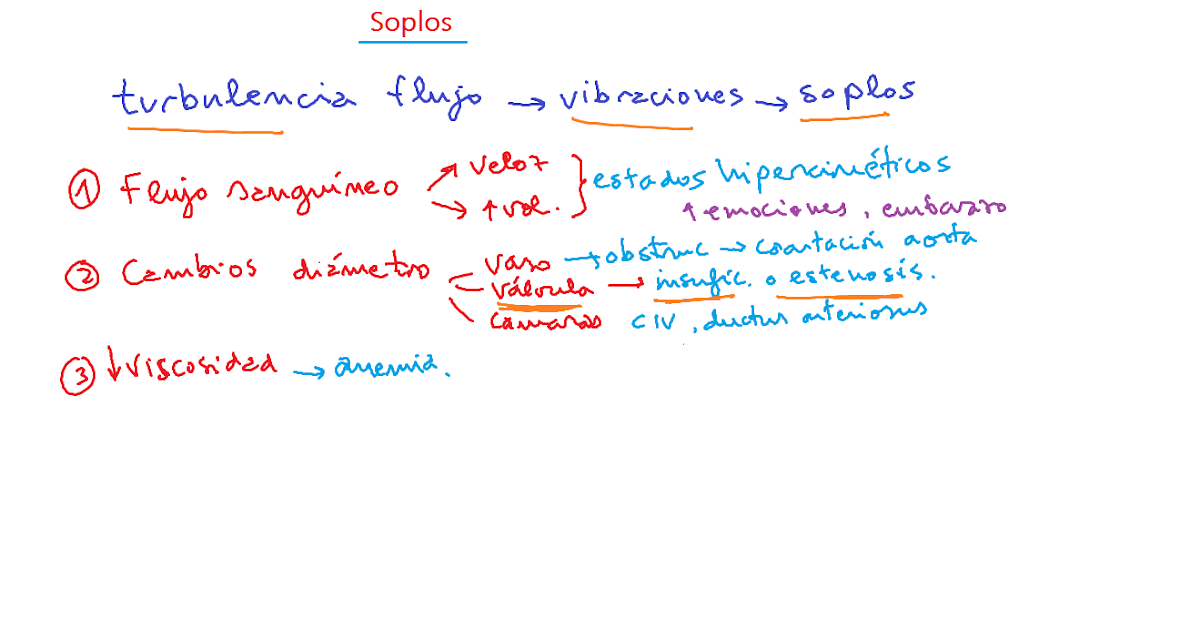 Soplos
turbulencia flujo → vibraciones → soplos
① Flujo sanguíneo
veloz
↑ vol.
} estados hipercinéticos
↑ emociones, embarazo
② Cambios diámetro
vaso → obstruc → coartación aorta
válvula → insufic. o estenosis.
cámaras CIV, ductus arteriosus
③ ↓ Viscosidad → anemia.